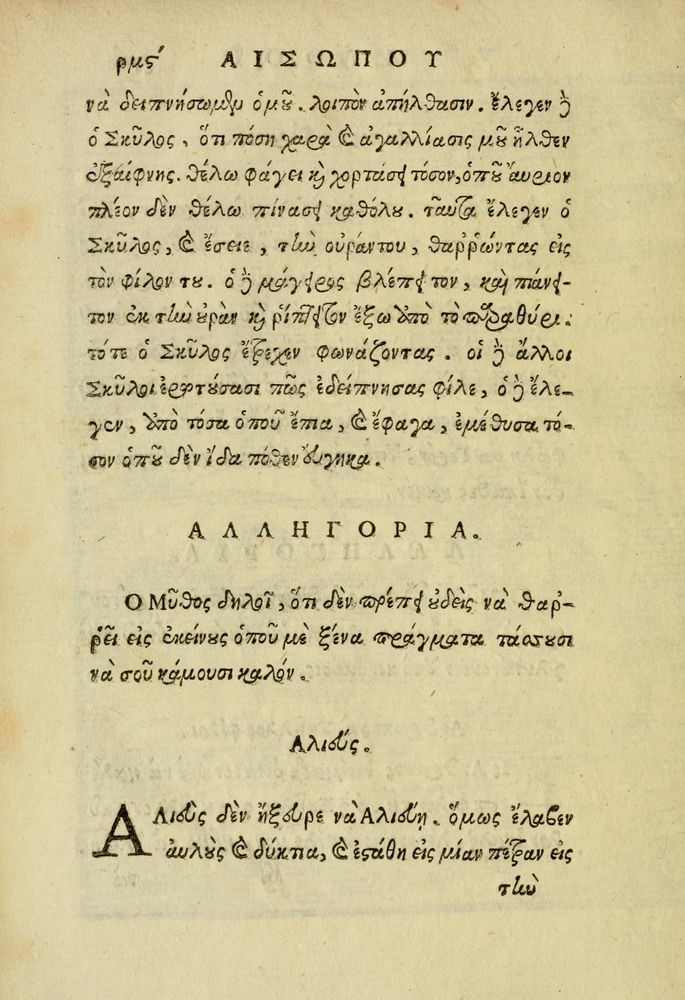 ρμϛ´ ΑΙΣΩΠΟΥ
νὰ δειπνήσωμεν ὁμοῦ. λοιπὸν ἀπήλθασιν. ἔλεγεν ὁ δὲ
ὁ Σκῦλος, ὅτι πόση χαρὰ καὶ ἀγαλλίασις μοῦ ἦλθεν
ἐξαίφνης. θέλω φάγει καὶ χορτάσει τόσον, ὁποῦ ἄυριον
πλέον δὲν θέλω πίνασει καθόλου. ταῦτα ἔλεγεν ὁ
Σκῦλος, καὶ ἔσειε, τὴν οὐράντου, θαῤῥώντας εἰς
τὸν φίλον του. ὁ δὲ μάγειρος βλέπει τον, καὶ πιάνει-
τον ἐκ τὴν οὐρὰν καὶ ῥίπτει τον ἔξω ἀπὸ τὸ παραθύρι.
τότε ὁ Σκῦλος ἔτρεχεν φωνάζοντας. οἱ δὲ ἄλλοι
Σκῦλοι ἐρωτούσασι πῶς ἐδείπνησας φίλε, ὁ δὲ ἔλε-
γεν, ἀπὸ τόσα ὁποῦ ἔπια, καὶ ἔφαγα, ἐμέθυσα τό-
σον ὁποῦ δὲν ἴδα πόθεν εὐγῆκα.
ΑΛΛΗΓΟΡΙΑ.
Ο Μῦθος δηλοῖ, ὅτι δὲν πρέπει οὐδεὶς νὰ θαῤ-
ῥεῖ εἰς ἐκείνους ὁποῦ μὲ ξένα πράγματα τάσσουσι
νὰ σοῦ κάμουσι καλόν.
Αλιεύς.
ΑΛιεὺς δὲν ἤξευρε νὰ Αλιεύη. ὅμως ἔλαβεν
ἀυλοὺς καὶ δύκτια, καὶ ἐστάθη εἰς μίαν πέτραν εἰς
τὴν